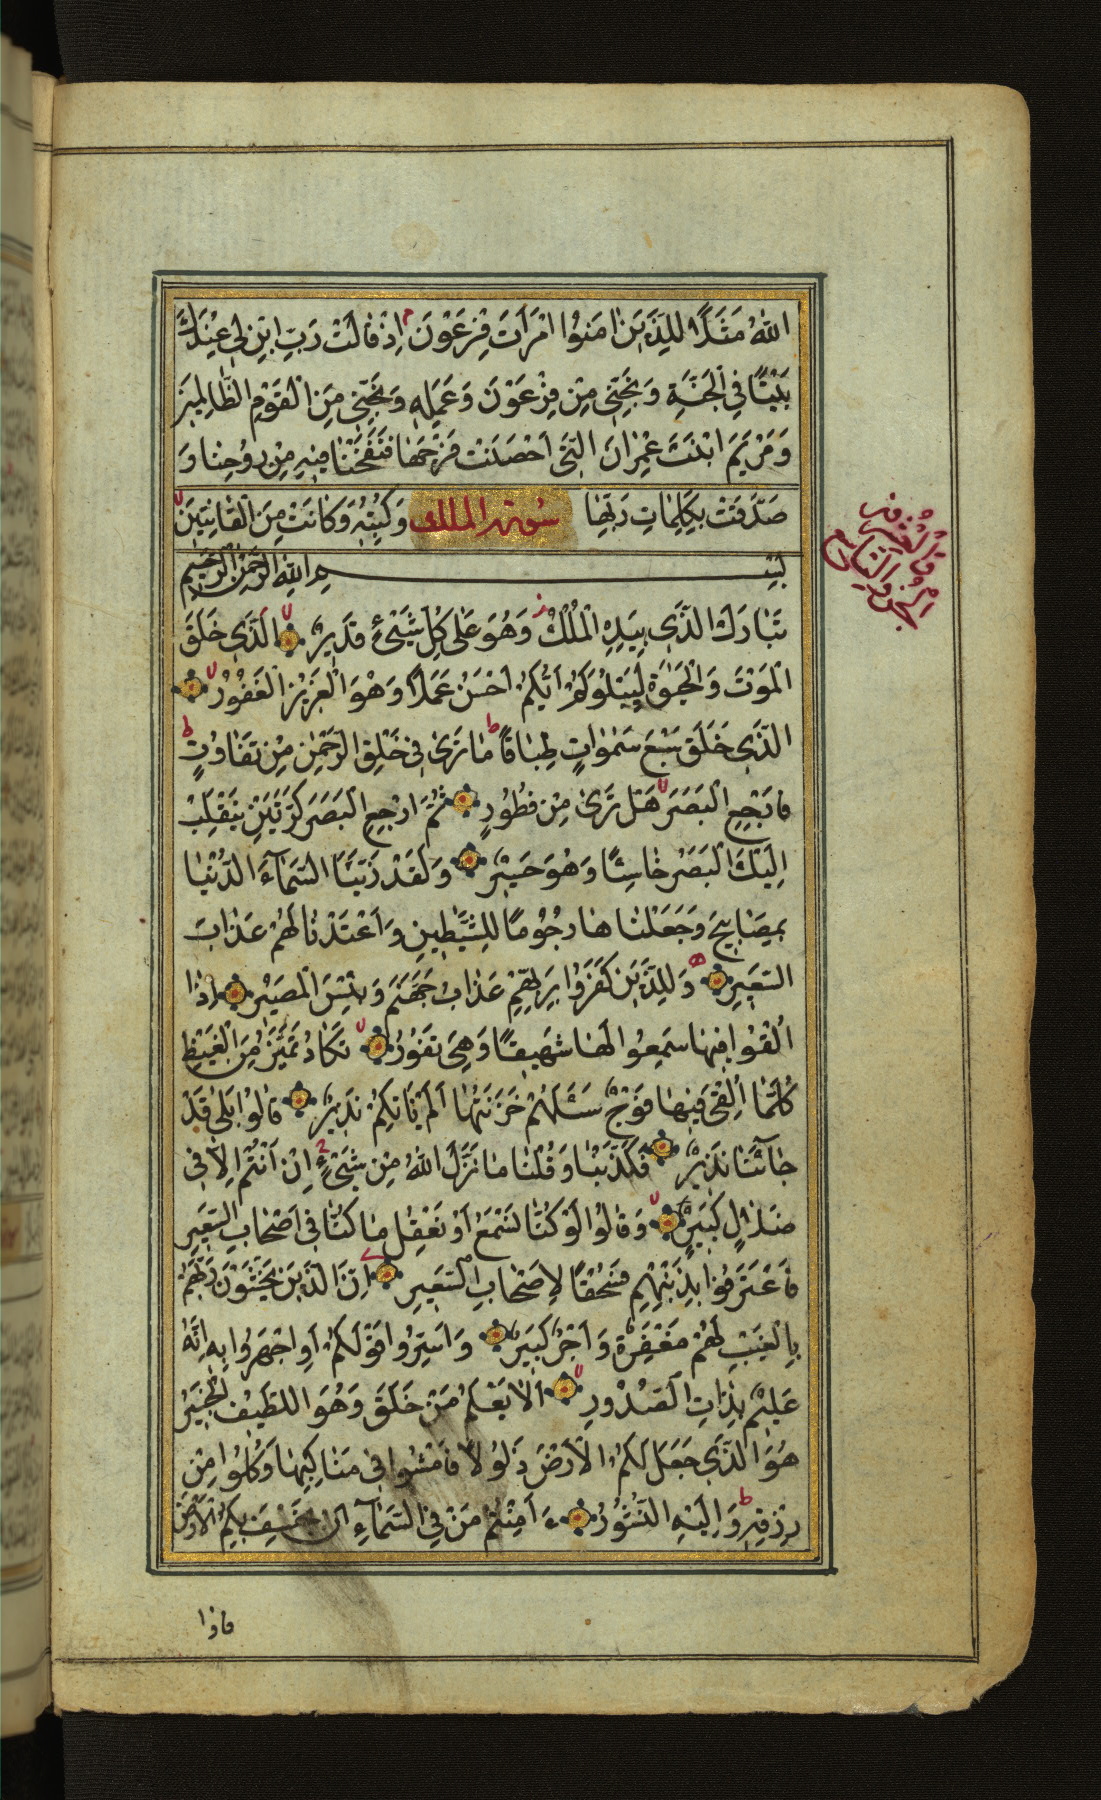 اللّٰهُ مَثَلًا لِلَّذِينَ اٰمَنُوا امْرَاَتَ فِرْعَوْنَ اِذْ قَالَتْ رَبِّ ابْنِ لِي عِنْدَكَ
بَيْتًا فِي الْجَنَّةِ وَنَجِّنِي مِنْ فِرْعَوْنَ وَعَمَلِهِ وَنَجِّنِي مِنَ الْقَوْمِ الظَّالِمِينَ
وَمَرْيَمَ ابْنَتَ عِمْرَانَ الَّتِي اَحْصَنَتْ فَرْجَهَا فَنَفَخْنَا فِيهِ مِنْ رُوحِنَا وَ
صَدَّقَتْ بِكَلِمَاتِ رَبِّهَا سورة الملك وَكُتُبِهِ وَكَانَتْ مِنَ الْقَانِتِينَ
بِسْمِ اللّٰهِ الرَّحْمٰنِ الرَّحِيمِ
تَبَارَكَ الَّذِي بِيَدِهِ الْمُلْكُ وَهُوَ عَلٰى كُلِّ شَيْءٍ قَدِيرٌ الَّذِي خَلَقَ
الْمَوْتَ وَالْحَيٰوةَ لِيَبْلُوَكُمْ اَيُّكُمْ اَحْسَنُ عَمَلًا وَهُوَ الْعَزِيزُ الْغَفُورُ
الَّذِي خَلَقَ سَبْعَ سَمٰوَاتٍ طِبَاقًا مَا تَرٰى فِي خَلْقِ الرَّحْمٰنِ مِنْ تَفَاوُتٍ
فَارْجِعِ الْبَصَرَ هَلْ تَرٰى مِنْ فُطُورٍ ثُمَّ ارْجِعِ الْبَصَرَ كَرَّتَيْنِ يَنْقَلِبْ
اِلَيْكَ الْبَصَرُ خَاسِئًا وَهُوَ حَسِيرٌ وَلَقَدْ زَيَّنَّا السَّمَاءَ الدُّنْيَا
بِمَصَابِيحَ وَجَعَلْنَاهَا رُجُومًا لِلشَّيَاطِينِ وَاَعْتَدْنَا لَهُمْ عَذَابَ
السَّعِيرِ وَلِلَّذِينَ كَفَرُوا بِرَبِّهِمْ عَذَابُ جَهَنَّمَ وَبِئْسَ الْمَصِيرُ اِذَا
اُلْقُوا فِيهَا سَمِعُوا لَهَا شَهِيقًا وَهِيَ تَفُورُ تَكَادُ تَمَيَّزُ مِنَ الْغَيْظِ
كُلَّمَا اُلْقِيَ فِيهَا فَوْجٌ سَئَلَهُمْ خَزَنَتُهَا اَلَمْ يَاْتِكُمْ نَذِيرٌ قَالُوا بَلٰى قَدْ
جَائَنَا نَذِيرٌ فَكَذَّبْنَا وَقُلْنَا مَا نَزَّلَ اللّٰهُ مِنْ شَيْءٍ اِنْ اَنْتُمْ اِلَّا فِي
ضَلَالٍ كَبِيرٍ وَقَالُوا لَوْ كُنَّا نَسْمَعُ اَوْ نَعْقِلُ مَا كُنَّا فِي اَصْحَابِ السَّعِيرِ
فَاعْتَرَفُوا بِذَنْبِهِمْ فَسُحْقًا لِاَصْحَابِ السَّعِيرِ اِنَّ الَّذِينَ يَخْشَوْنَ رَبَّهُمْ
بِالْغَيْبِ لَهُمْ مَغْفِرَةٌ وَاَجْرٌ كَبِيرٌ وَاَسِرُّوا قَوْلَكُمْ اَوِ اجْهَرُوا بِهِ اِنَّهُ
عَلِيمٌ بِذَاتِ الصُّدُورِ اَلَا يَعْلَمُ مَنْ خَلَقَ وَهُوَ اللَّطِيفُ الْخَبِيرُ
هُوَ الَّذِي جَعَلَ لَكُمُ الْاَرْضَ ذَلُولًا فَامْشُوا فِي مَنَاكِبِهَا وَكُلُوا مِنْ
رِزْقِهِ وَاِلَيْهِ النُّشُورُ ءَاَمِنْتُمْ مَنْ فِي السَّمَاءِ اَنْ يَخْسِفَ بِكُمُ الْاَرْضَ
فاذا
الجزو التاسع
والعشرون